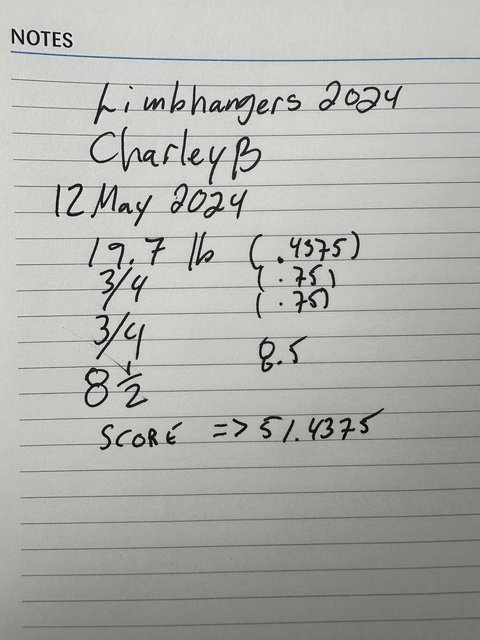 NOTES
Limbhangers 2024
Charley B
12 May 2024
19.7 lb (.4375)
3/4 (.75)
3/4 (.75)
8 1/2 8.5
SCORE => 51.4375